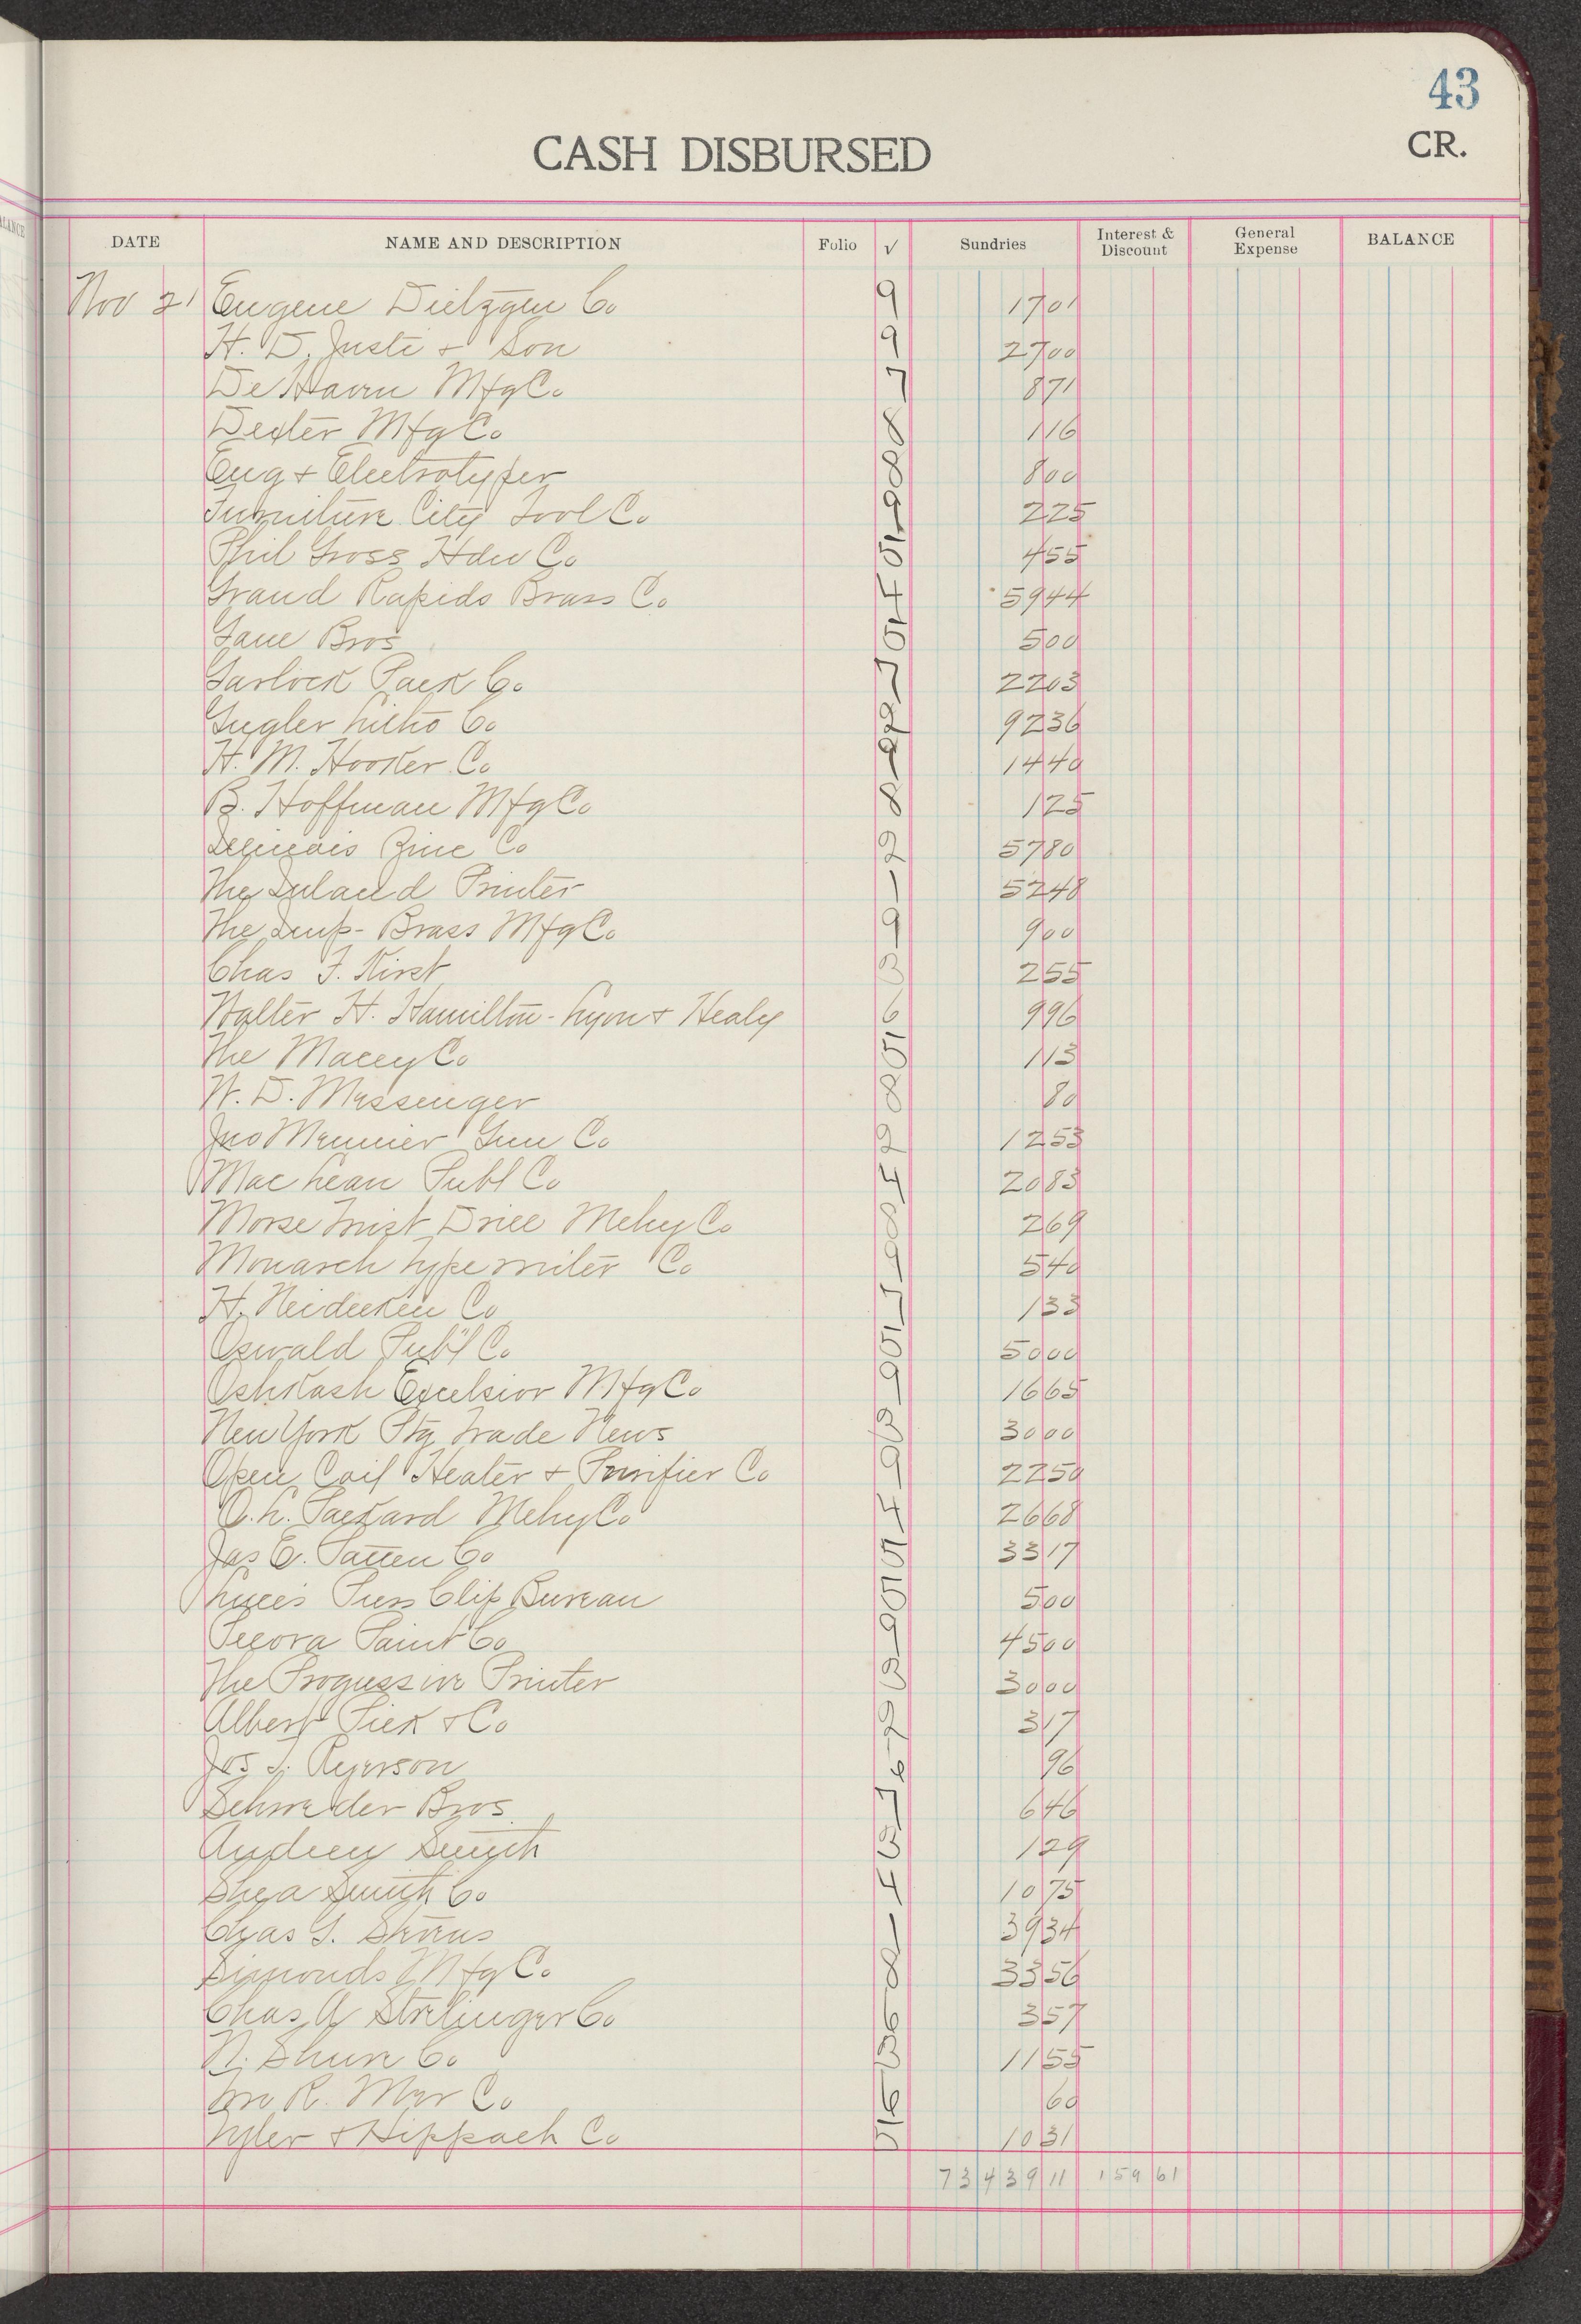 43
CASH DISBURSED
CR.
DATE NAME AND DESCRIPTION Folio √ Sundries Interest & Discount General Expense BALANCE
Nov 21 Eugene Dietzgen Co 9 17 01
H. D. Justi + Son 9 27 00
De Haven Mfg Co 7 8 71
Dexter Mfg Co 8 1 16
Eng + Electrotyper 8 8 00
Furniture City Tool Co 9 2 25
Phil Gross Hdw Co 5 4 55
Grand Rapids Brass Co 4 59 44
Gane Bros 5 5 00
Garlock Pack Co 7 22 03
Gugler Litho Co 2 92 36
H. M. Hooker Co 9 14 40
B. Hoffman Mfg Co 8 1 25
Illinois Zinc Co 2 57 80
The Inland Printer 1 52 48
The Imp- Brass Mfg Co 9 9 00
Chas F. Kirst 3 2 55
Walter H. Hamilton - Lyon + Healy 6 9 96
The Macey Co 5 1 13
W. D. Messenger 8 80
Jno Meunier Gun Co 2 12 53
Mac Lean Publ Co 4 20 83
Morse Twist Drill Mchy Co 8 2 69
Monarch Typewriter Co 9 5 40
H. Neidecken Co 7 1 33
Oswald Publ Co 5 50 00
Oshkosh Excelsior Mfg Co 9 16 65
New York Ptg Trade News 3 30 00
Open Coil Heater + Purifier Co 9 22 50
O. L. Packard Mchy Co 4 26 68
Jas E. Patten Co 5 33 17
Luce's Press Clip Bureau 5 5 00
Pecora Paint Co 9 45 00
The Progressive Printer 3 30 00
Albert Pick + Co 2 3 17
Jos T. Ryerson 6 96
Schroeder Bros 7 6 46
Audrey Smith 3 1 29
Shea Smith Co 4 10 75
Chas G. Stevens 1 39 34
Simonds Mfg Co 8 33 56
Chas A Strelinger Co 6 3 57
N. Shure Co 3 11 55
R. Co 6 60
Tyler + Hippach Co 5 10 31
73 439 11 159 61